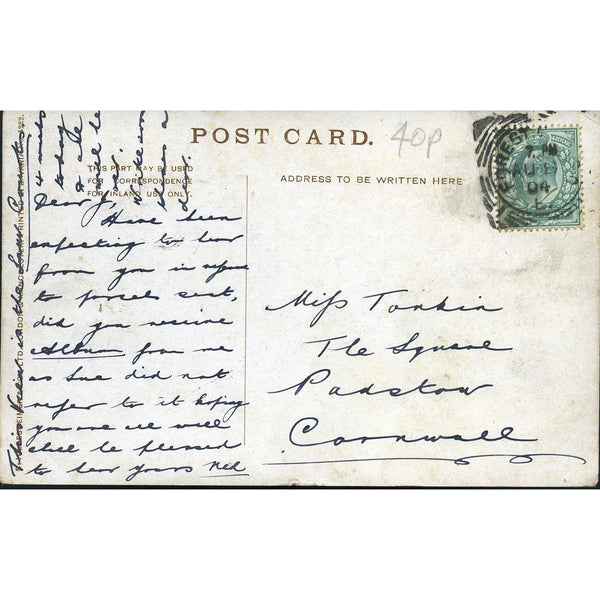 POST CARD.
40p
THIS PART MAY BE USED
FOR CORRESPONDENCE
FOR INLAND USE ONLY.
ADDRESS TO BE WRITTEN HERE
FOREST
PM
AU
04
E
Dear J,
Have been
expecting to hear
from you in
to parcels sent,
did you receive
Album from me
as Sue did not
refer to it hoping
you are all well
shall be pleased
to hear yours Ned
Miss Tonkin
The Square
Padstow
Cornwall
This View is the
4 miles
today